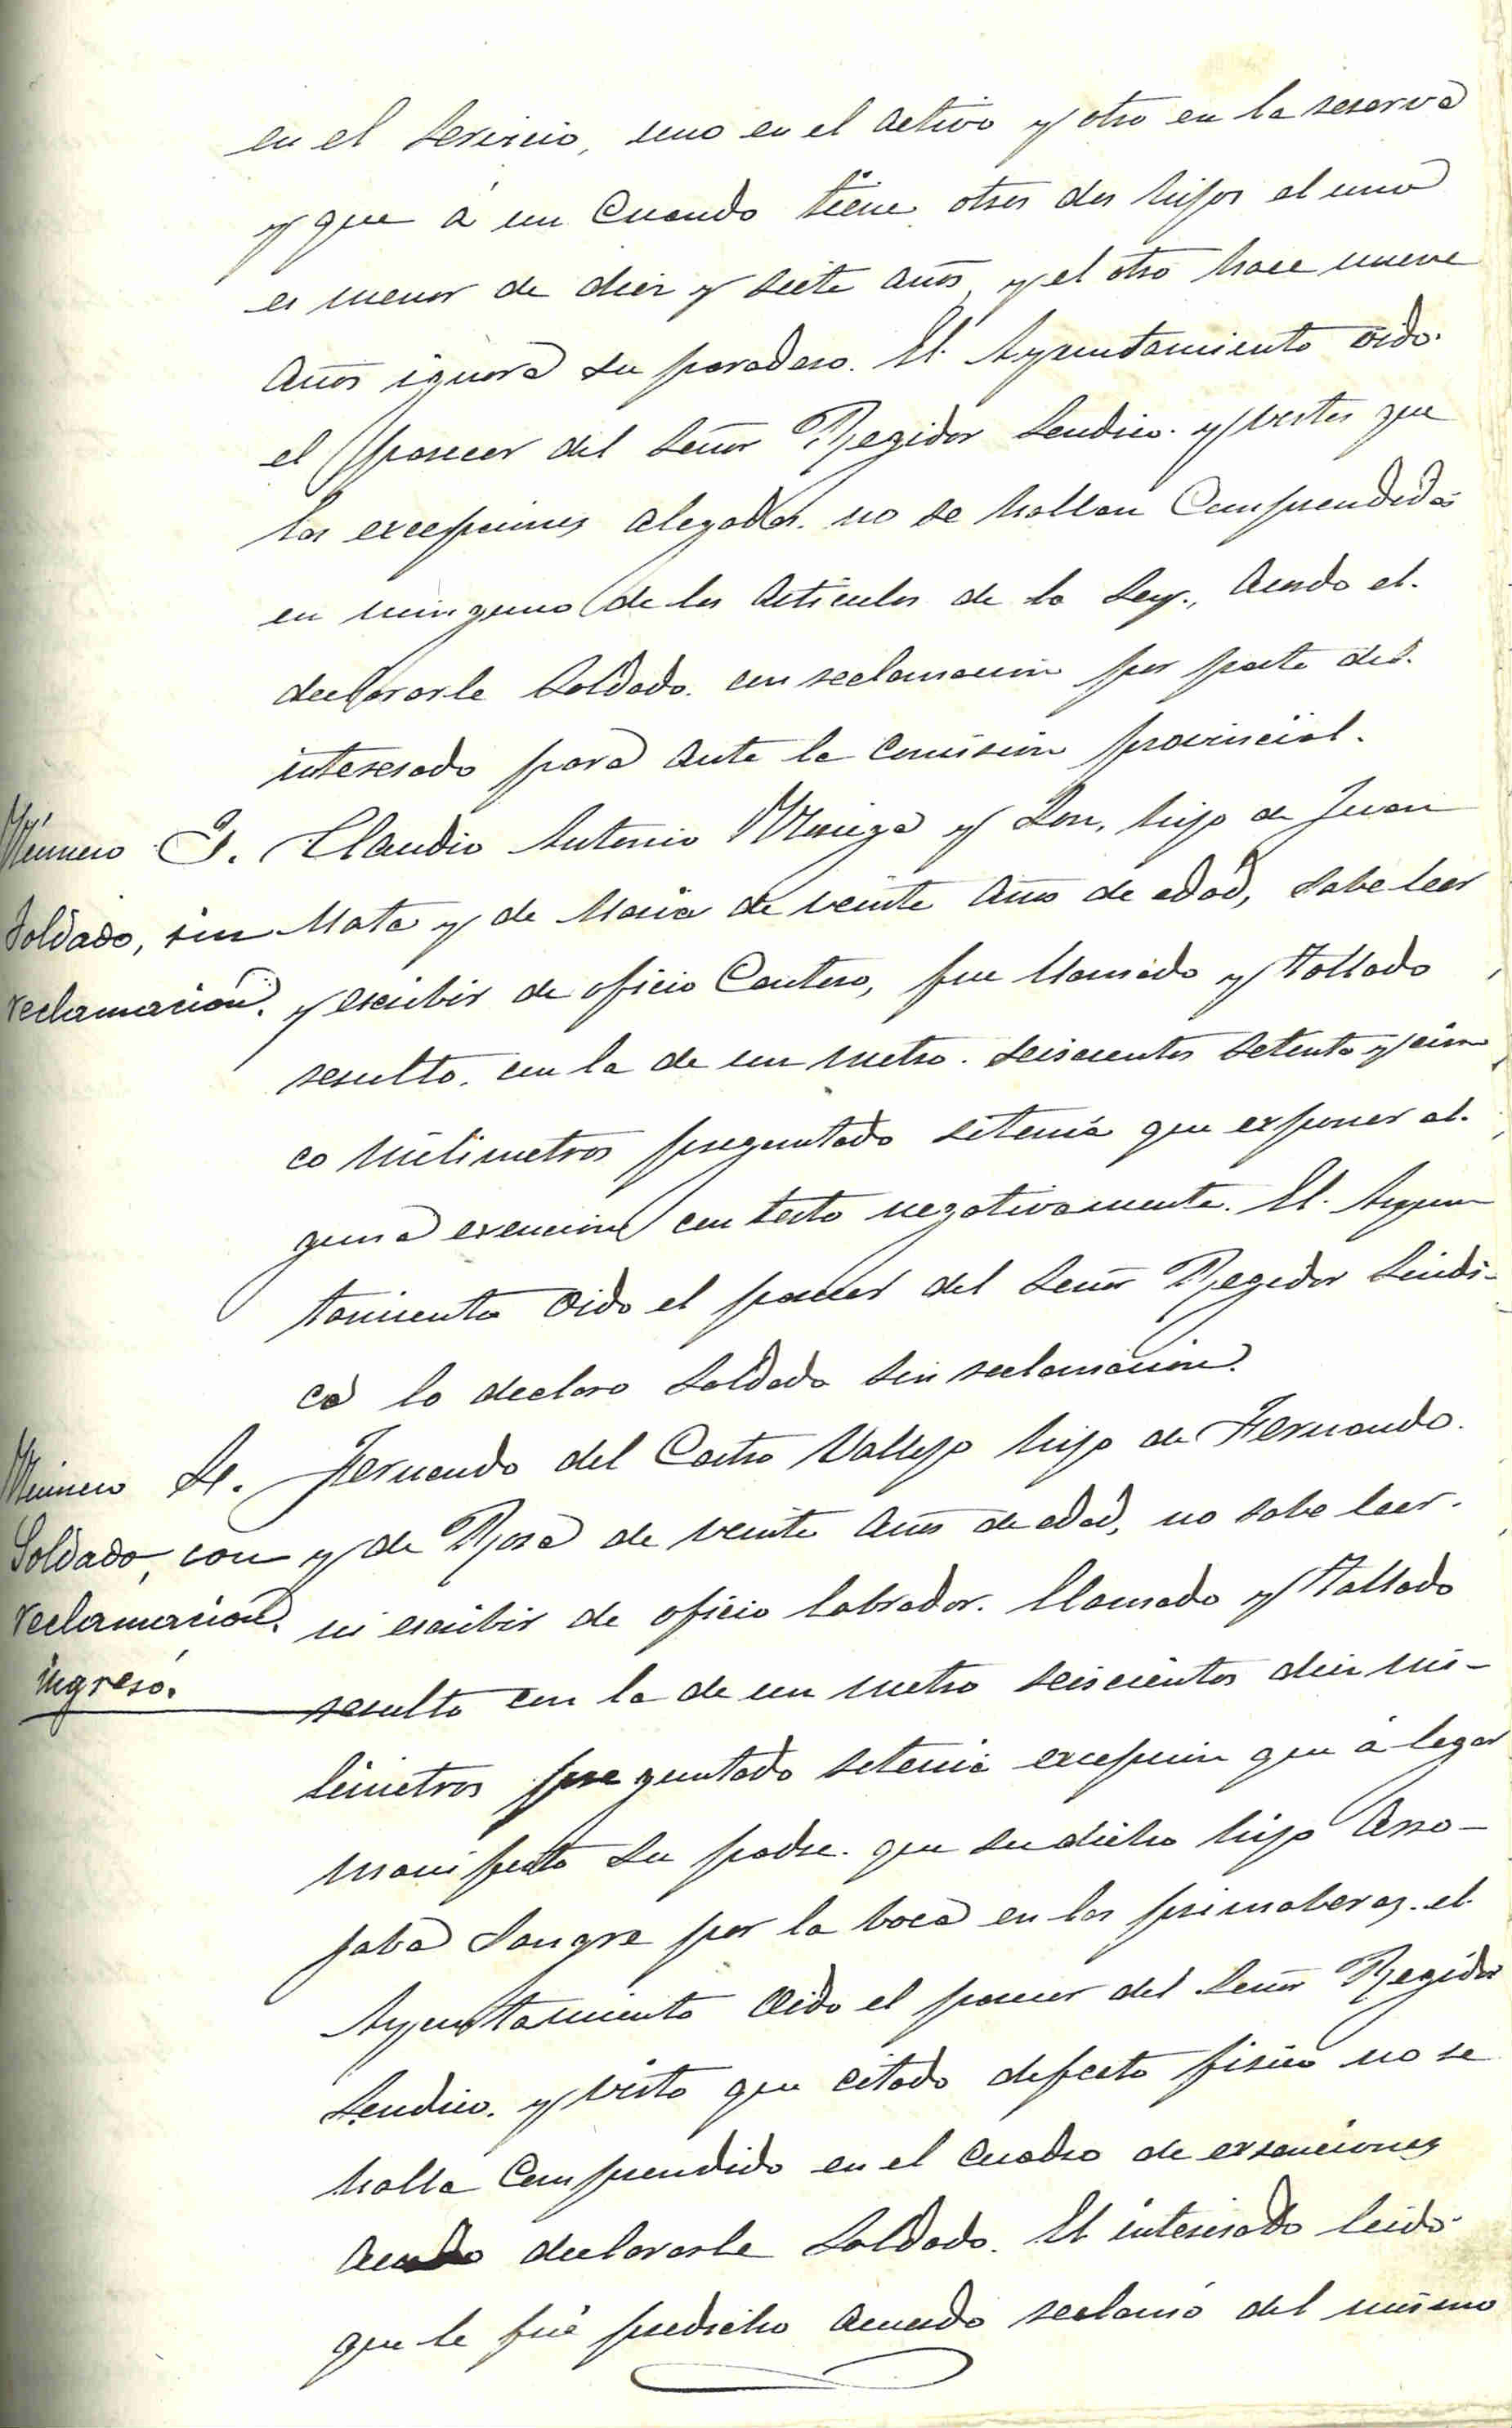 en el Servicio, uno en el activo y otro en la reserva
y que á un Cuando tiene otros dos hijos el uno
es menor de diez y siete años, y el otro hace nueve
años ignora su paradero. El Ayuntamiento oido
el parecer del Señor Regidor Sendico y vistos que
las excepciones alegadas no se hallan Comprendidas
en ninguno de los articulos de la Ley, acordo el
declararle Soldado con reclamacion por parte del
interesado para ante la Comision provincial.
Número 3. Claudio Antonio y hijo de Juan
Soldado, sin Mata y de Maria de veinte años de edad, sabe leer
reclamacion. y escribir de oficio Cantero, fue llamado y tallado
resulto con la de un metro seiscientos setenta y cin
co milimetros preguntado si tenia que exponer al
guna exencion contesto negativamente. El Ayun
tamiento oido el parecer del Señor Regidor Sindi-
co lo declaro Soldado sin reclamacion.
Número 4. Fernando del Castro Vallejo hijo de Fernando
Soldado, con y de Rosa de veinte años de edad, no sabe leer
reclamacion. ni escribir de oficio labrador. llamado y tallado
ingresó. resulto con la de un metro seiscientos diez mi-
limetros preguntado si tenia excepcion que á legar
manifesto su padre que su dicho hijo arro-
jaba sangre por la boca en las primaberas. el
Ayuntamiento oido el parecer del Señor Regidor
Sendico y visto que citado defecto fisico no se
halla Comprendido en el Cuadro de exsenciones
acordo declararle Soldado. El interesado leido
que le fué predicho acuerdo reclamó del mismo